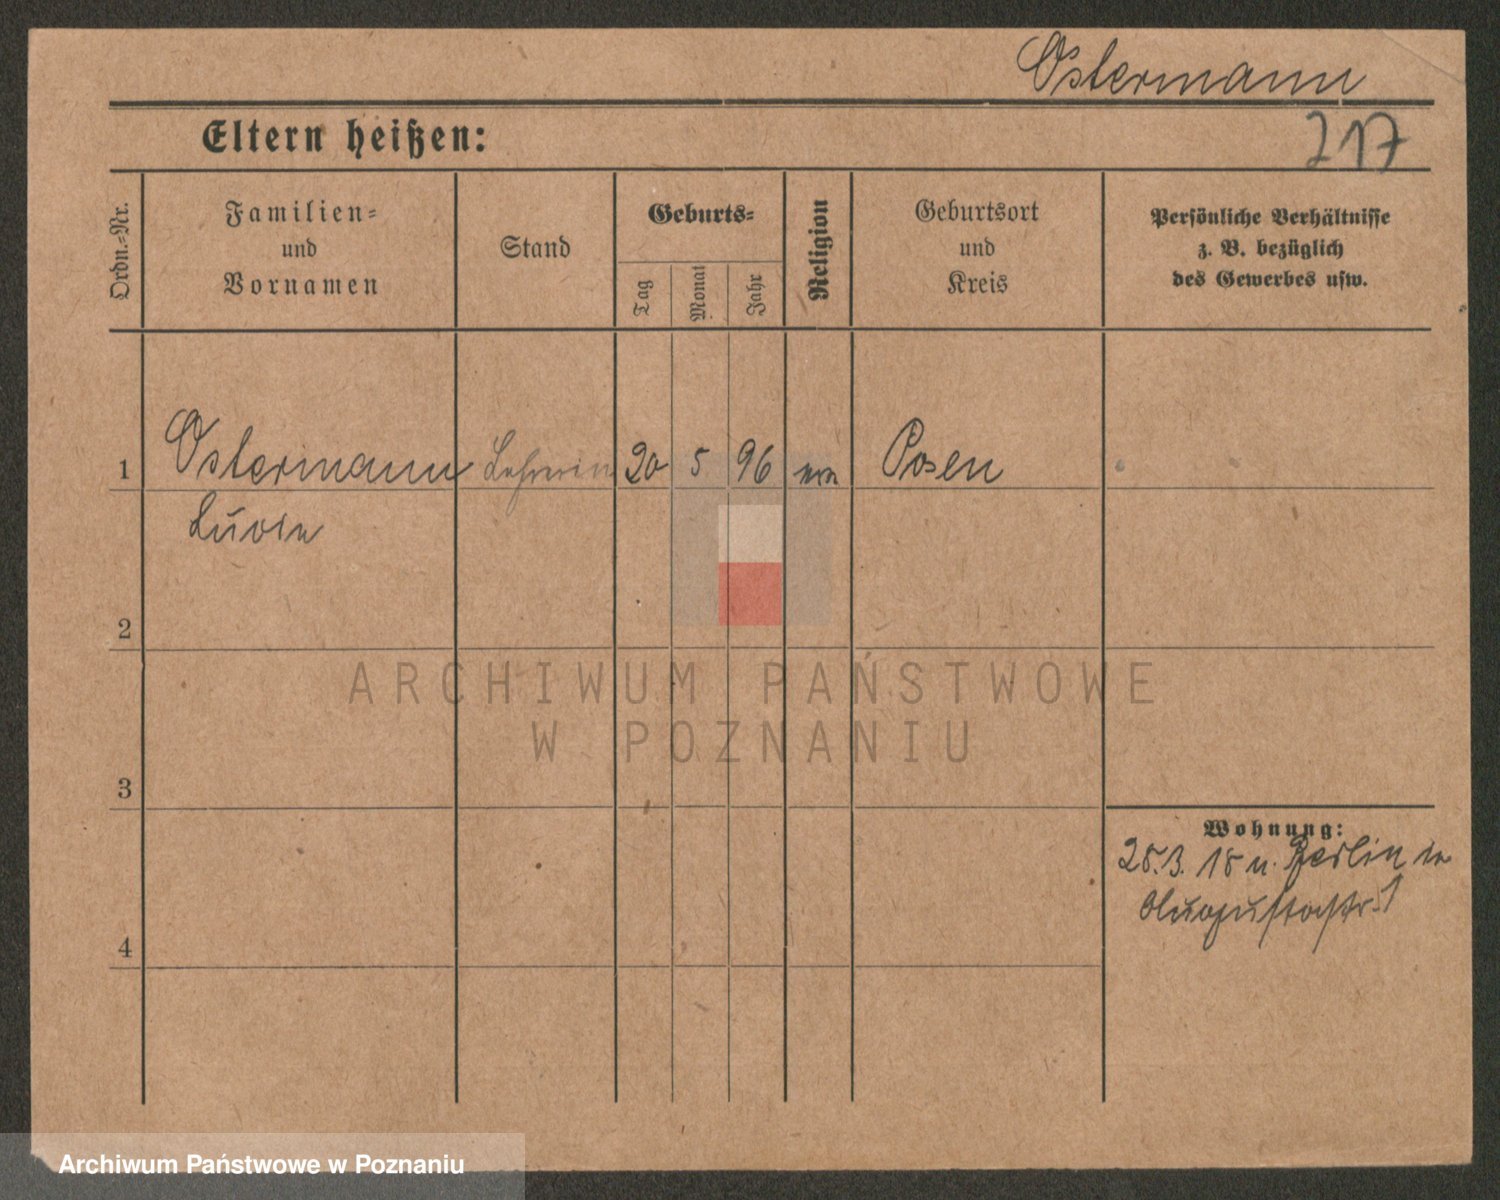 Ostermann
Eltern heißen:
217
Ordn.-Nr.
Familien- und Vornamen
Stand
Geburts-
Tag
Monat
Jahr
Religion
Geburtsort und Kreis
Persönliche Verhältnisse
z. B. bezüglich
des Gewerbes usw.
1
Ostermann
Lehrerin
20
5
96
Posen
2
3
4
Wohnung:
18 n. Berlin
Augustastr. 1
ARCHIWUM PAŃSTWOWE
W POZNANIU
Archiwum Państwowe w Poznaniu